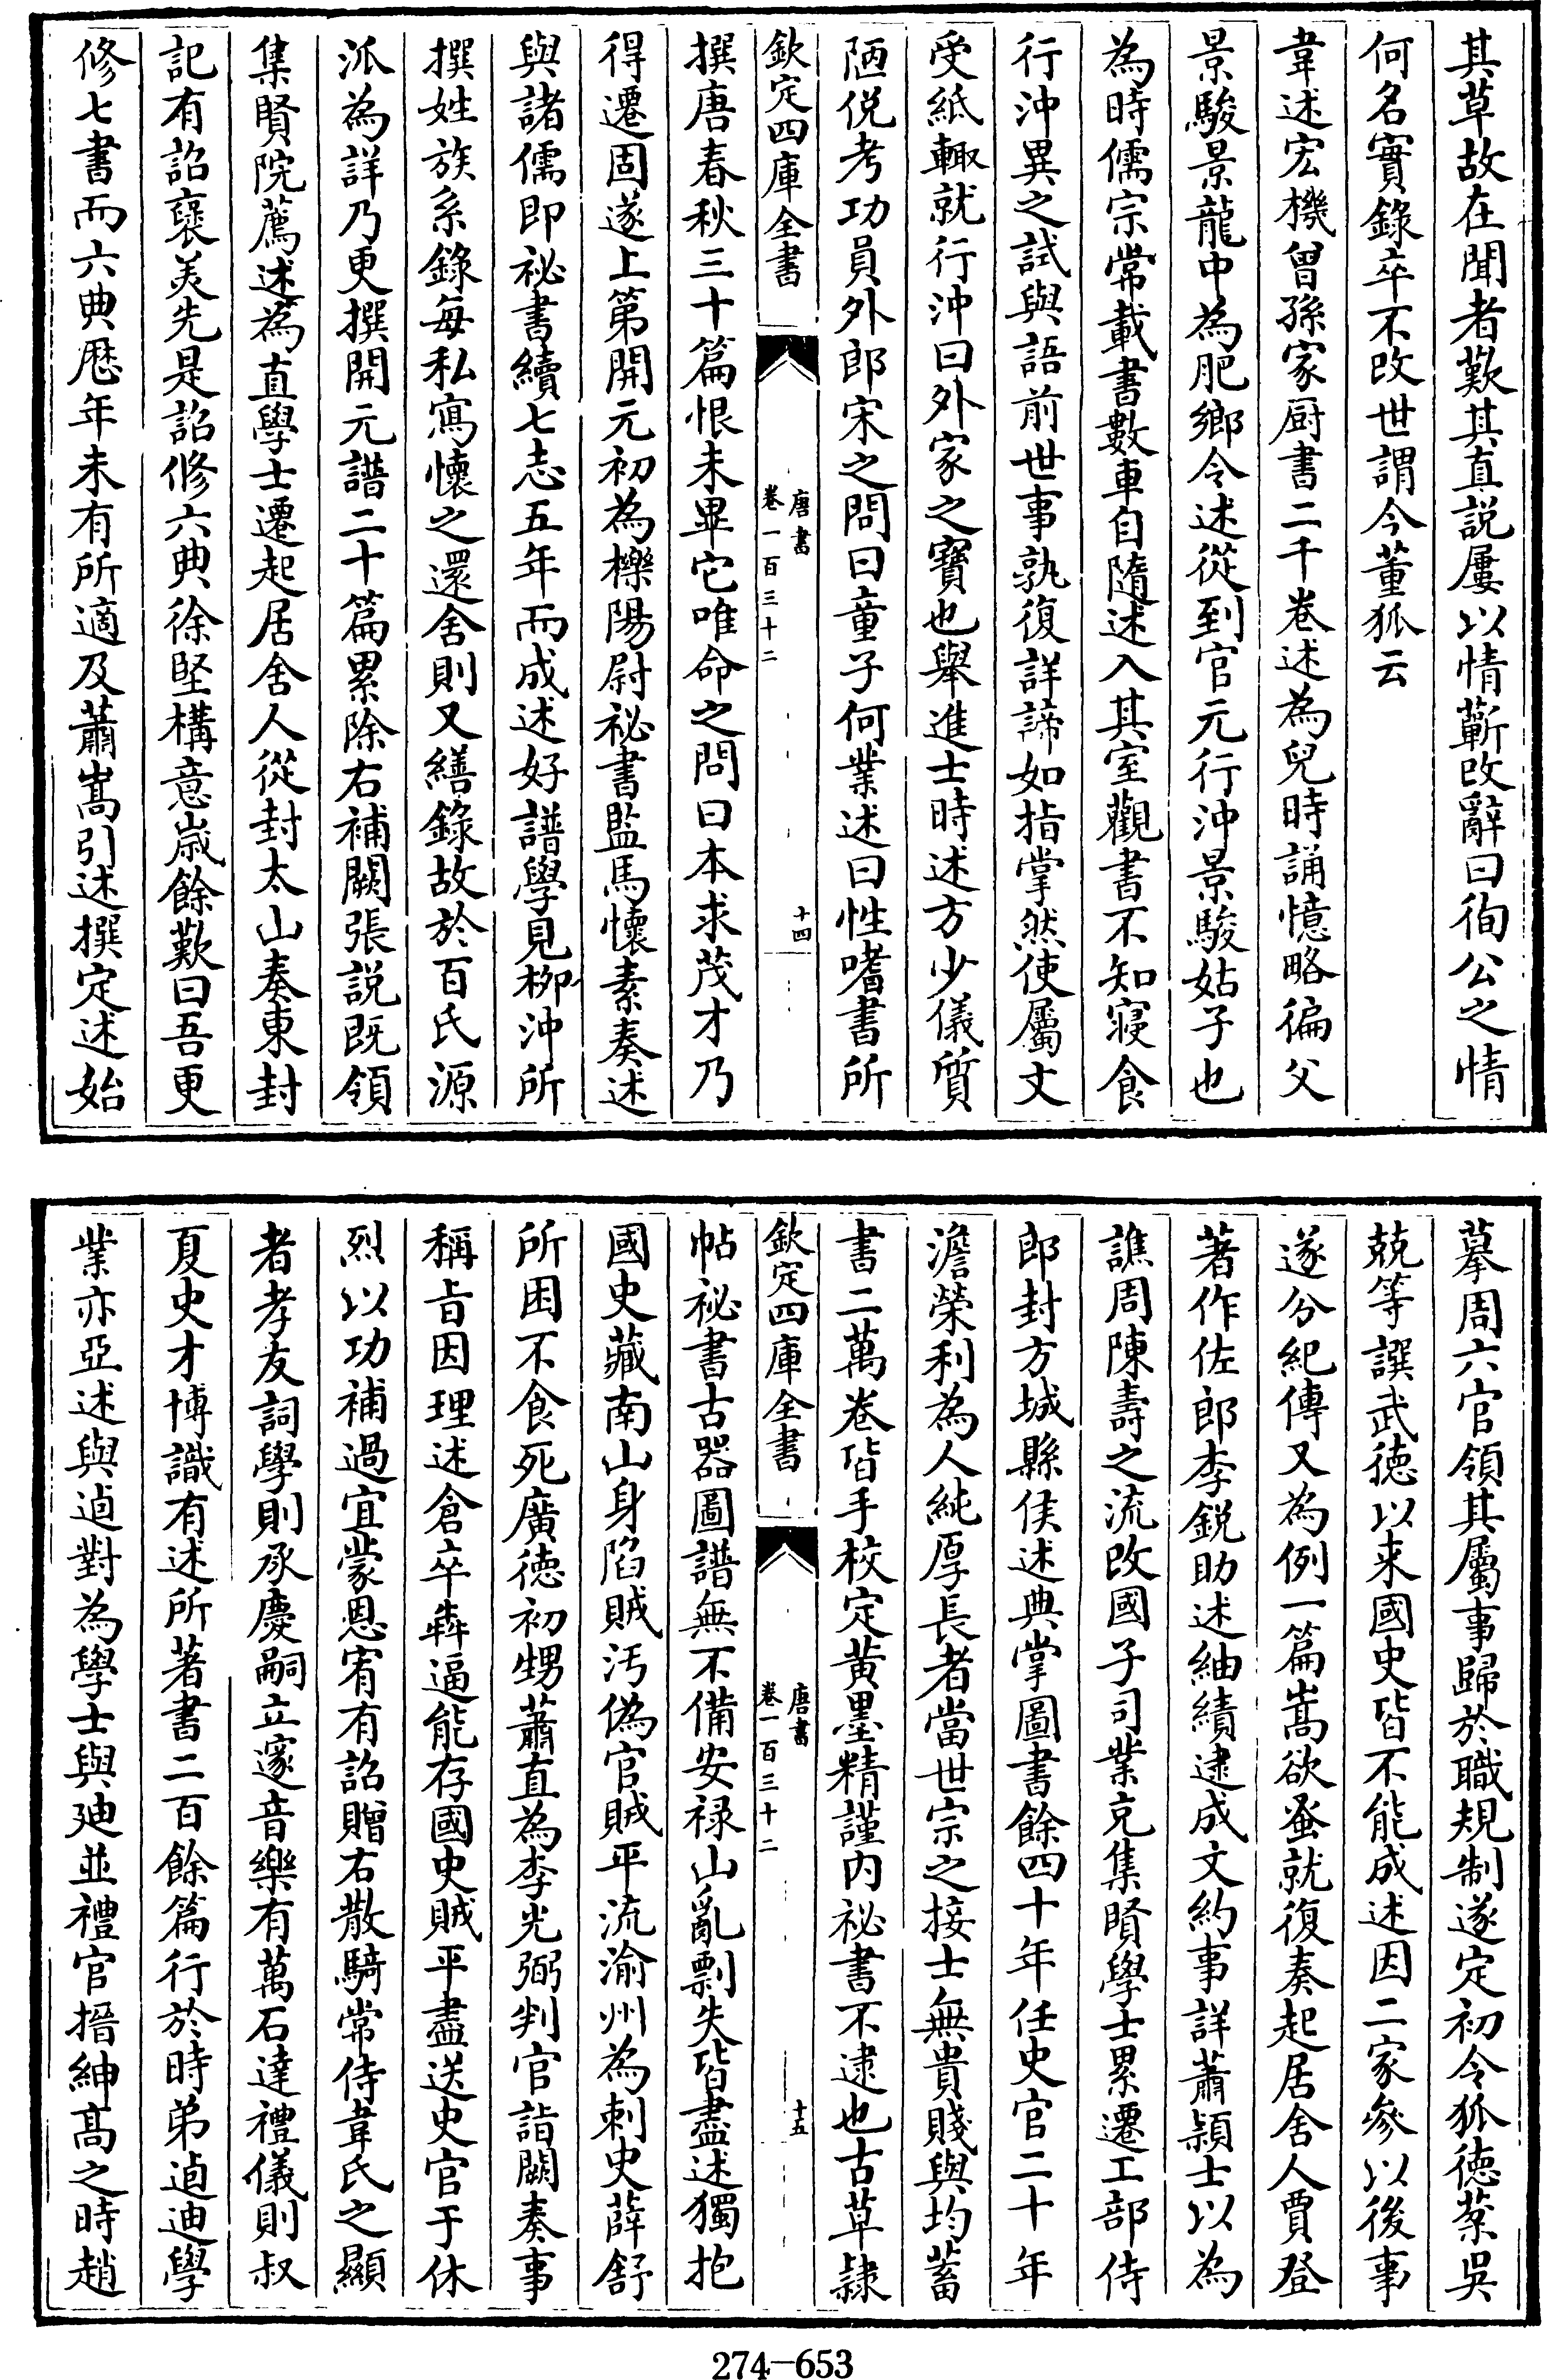 其草故在聞者歎其直説屢以情蘄改辭曰徇公之情
何名實錄卒不改世謂今董狐云
韋述宏機曾孫家厨書二千卷述為兒時誦憶略徧父
景駿景龍中為肥鄉令述從到官元行沖景駿姑子也
為時儒宗常載書數車自隨述入其室觀書不知寢食
行沖異之試與語前世事孰復詳諦如指掌然使屬文
受紙輙就行沖曰外家之寶也舉進士時述方少儀質
陋侻考功員外郎宋之問曰童子何業述曰性嗜書所
欽定四庫全書
唐書
卷一百三十二
十四
撰唐春秋三十篇恨未畢它唯命之問曰本求茂才乃
得遷固遂上第開元初為櫟陽尉祕書監馬懷素奏述
與諸儒即祕書續七志五年而成述好譜學見柳沖所
撰姓族系錄每私寫懷之還舍則又繕錄故於百氏源
派為詳乃更撰開元譜二十篇累除右補闕張説既領
集賢院薦述為直學士遷起居舍人從封太山奏東封
記有詔褒美先是詔修六典徐堅構意歲餘歎曰吾更
修七書而六典厯年未有所適及蕭嵩引述撰定述始
摹周六官領其屬事歸於職規制遂定初令狐德棻吳
兢等譔武德以来國史皆不能成述因二家參以後事
遂分紀傳又為例一篇嵩欲蚤就復奏起居舍人賈登
著作佐郎李鋭助述紬績逮成文約事詳蕭穎士以為
譙周陳壽之流改國子司業充集賢學士累遷工部侍
郎封方城縣侯述典掌圖書餘四十年任史官二十年
澹榮利為人純厚長者當世宗之接士無貴賤與均蓄
書二萬卷皆手校定黃墨精謹内祕書不逮也古草隸
欽定四庫全書
唐書
卷一百三十二
十五
帖祕書古器圖譜無不備安禄山亂剽失皆盡述獨抱
國史藏南山身陷賊汚偽官賊平流渝州為刺史薛舒
所困不食死廣德初甥蕭直為李光弼判官詣闕奏事
稱旨因理述倉卒犇逼能存國史賊平盡送史官于休
烈以功補過宜蒙恩宥有詔贈右散騎常侍韋氏之顯
者孝友詞學則承慶嗣立邃音樂有萬石達禮儀則叔
夏史才博識有述所著書二百餘篇行於時弟逌迪學
業亦亞述與逌對為學士與廸並禮官搢紳髙之時趙
274—653